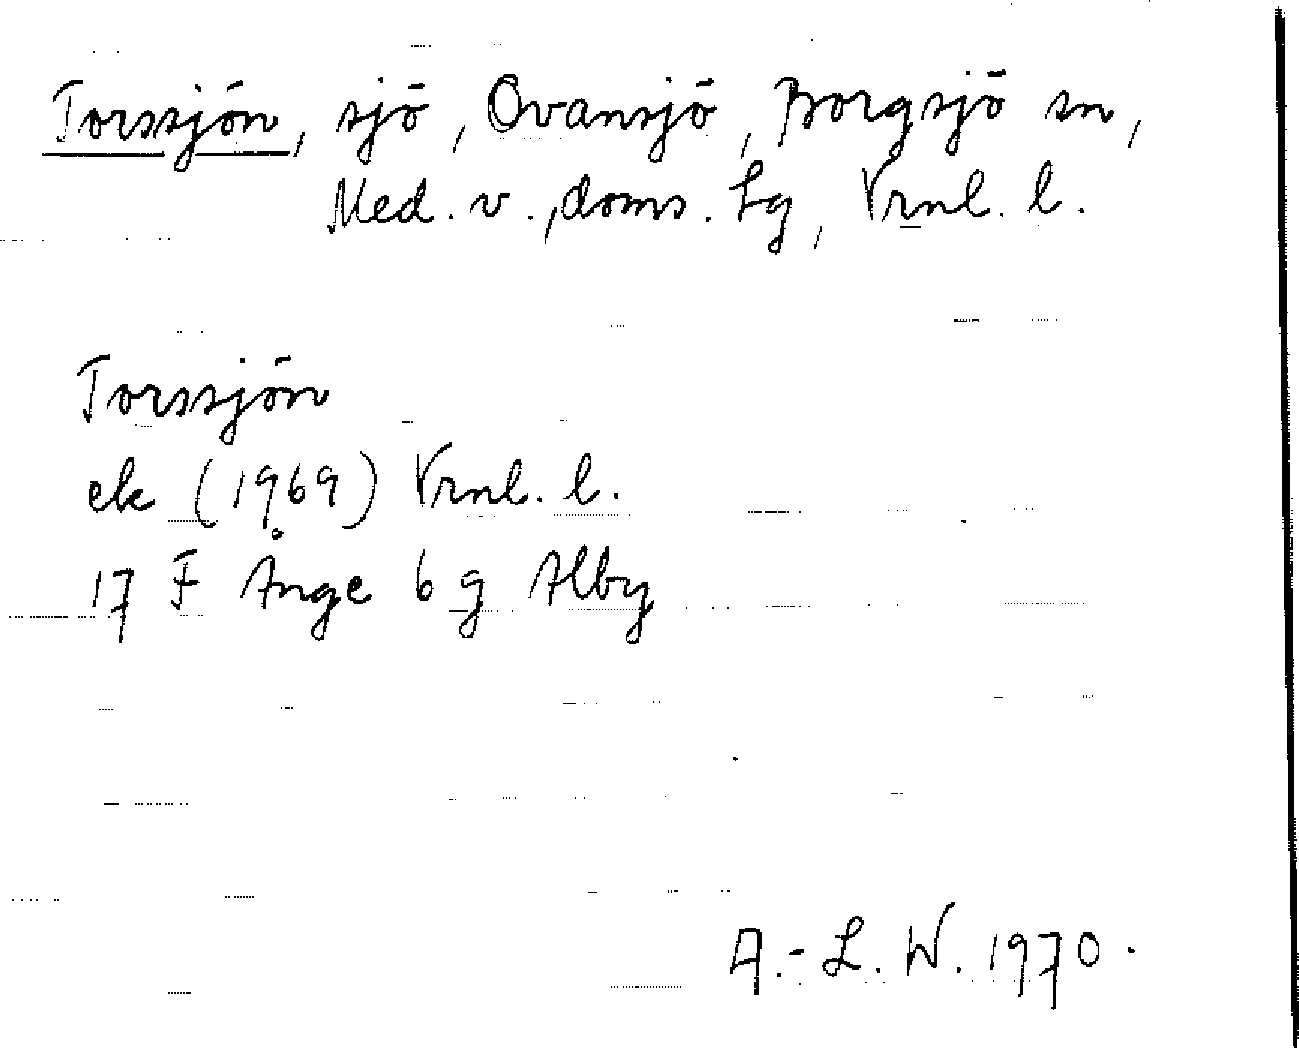 Torssjön, sjö, Ovansjö, Borgsjö sn,
Med. v., doms. Lg, Vrnl. l.
Torssjön
ek (1969) Vrnl. l.
17 F Ånge 6 g Alby
A.-L. W. 1970.